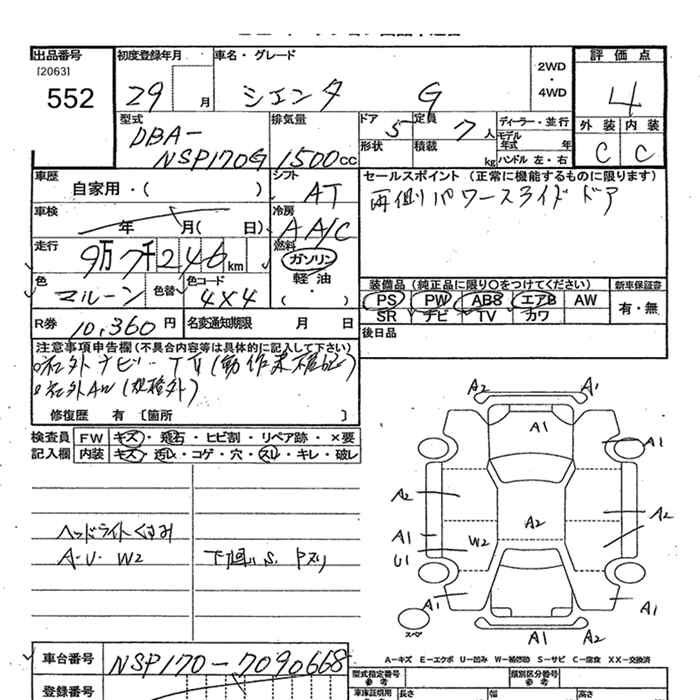 出品番号 初度登録年月 車名・グレード 2WD・4WD 評価点
[2063]
552 29 月 シエンタ G 4
型式 排気量 ドア 5 定員 7人 ディーラー・並行 外装 内装
DBA-
NSP170G 1500cc 形状 積載 kg モデル年式 年 C C
ハンドル 左・右
車歴 シフト セールスポイント (正常に機能するものに限ります)
自家用・( ) AT 両側パワースライドドア
車検 冷房
年 月( 日) AA/C
走行 燃料
9万7千246km ガソリン
軽油
・( )
色 色替 色コード 装備品 (純正品に限り○をつけてください) 新車保証書
マルーン 4X4 PS PW ABS エアB AW 有・無
SR ナビ TV カワ
R券 10,360円 名変通知期限 月 日 後日品
注意事項申告欄 (不具合内容等は具体的に記入して下さい)
社外ナビ TV(動作未確認)
社外AW(規格外)
修復歴 有 〔箇所 〕
検査員 FW キズ・飛石・ヒビ割・リペア跡・×要
記入欄 内装 キズ・汚レ・コゲ・穴・スレ・キレ・破レ
ヘッドライトくすみ
A・U・W2 下廻りS、Pズリ
A2 A1
A1
A1
A2
A2
A2
A1
W2
U1
A1
A1
スペア
A1 A2
A-キズ E-エクボ U-凹み W-補修跡 S-サビ C-腐食 XX-交換済
車台番号 NSP170-7090668
型式指定番号 類別区分番号
参考 参考
登録番号 車庫証明用 長さ 幅 高さ